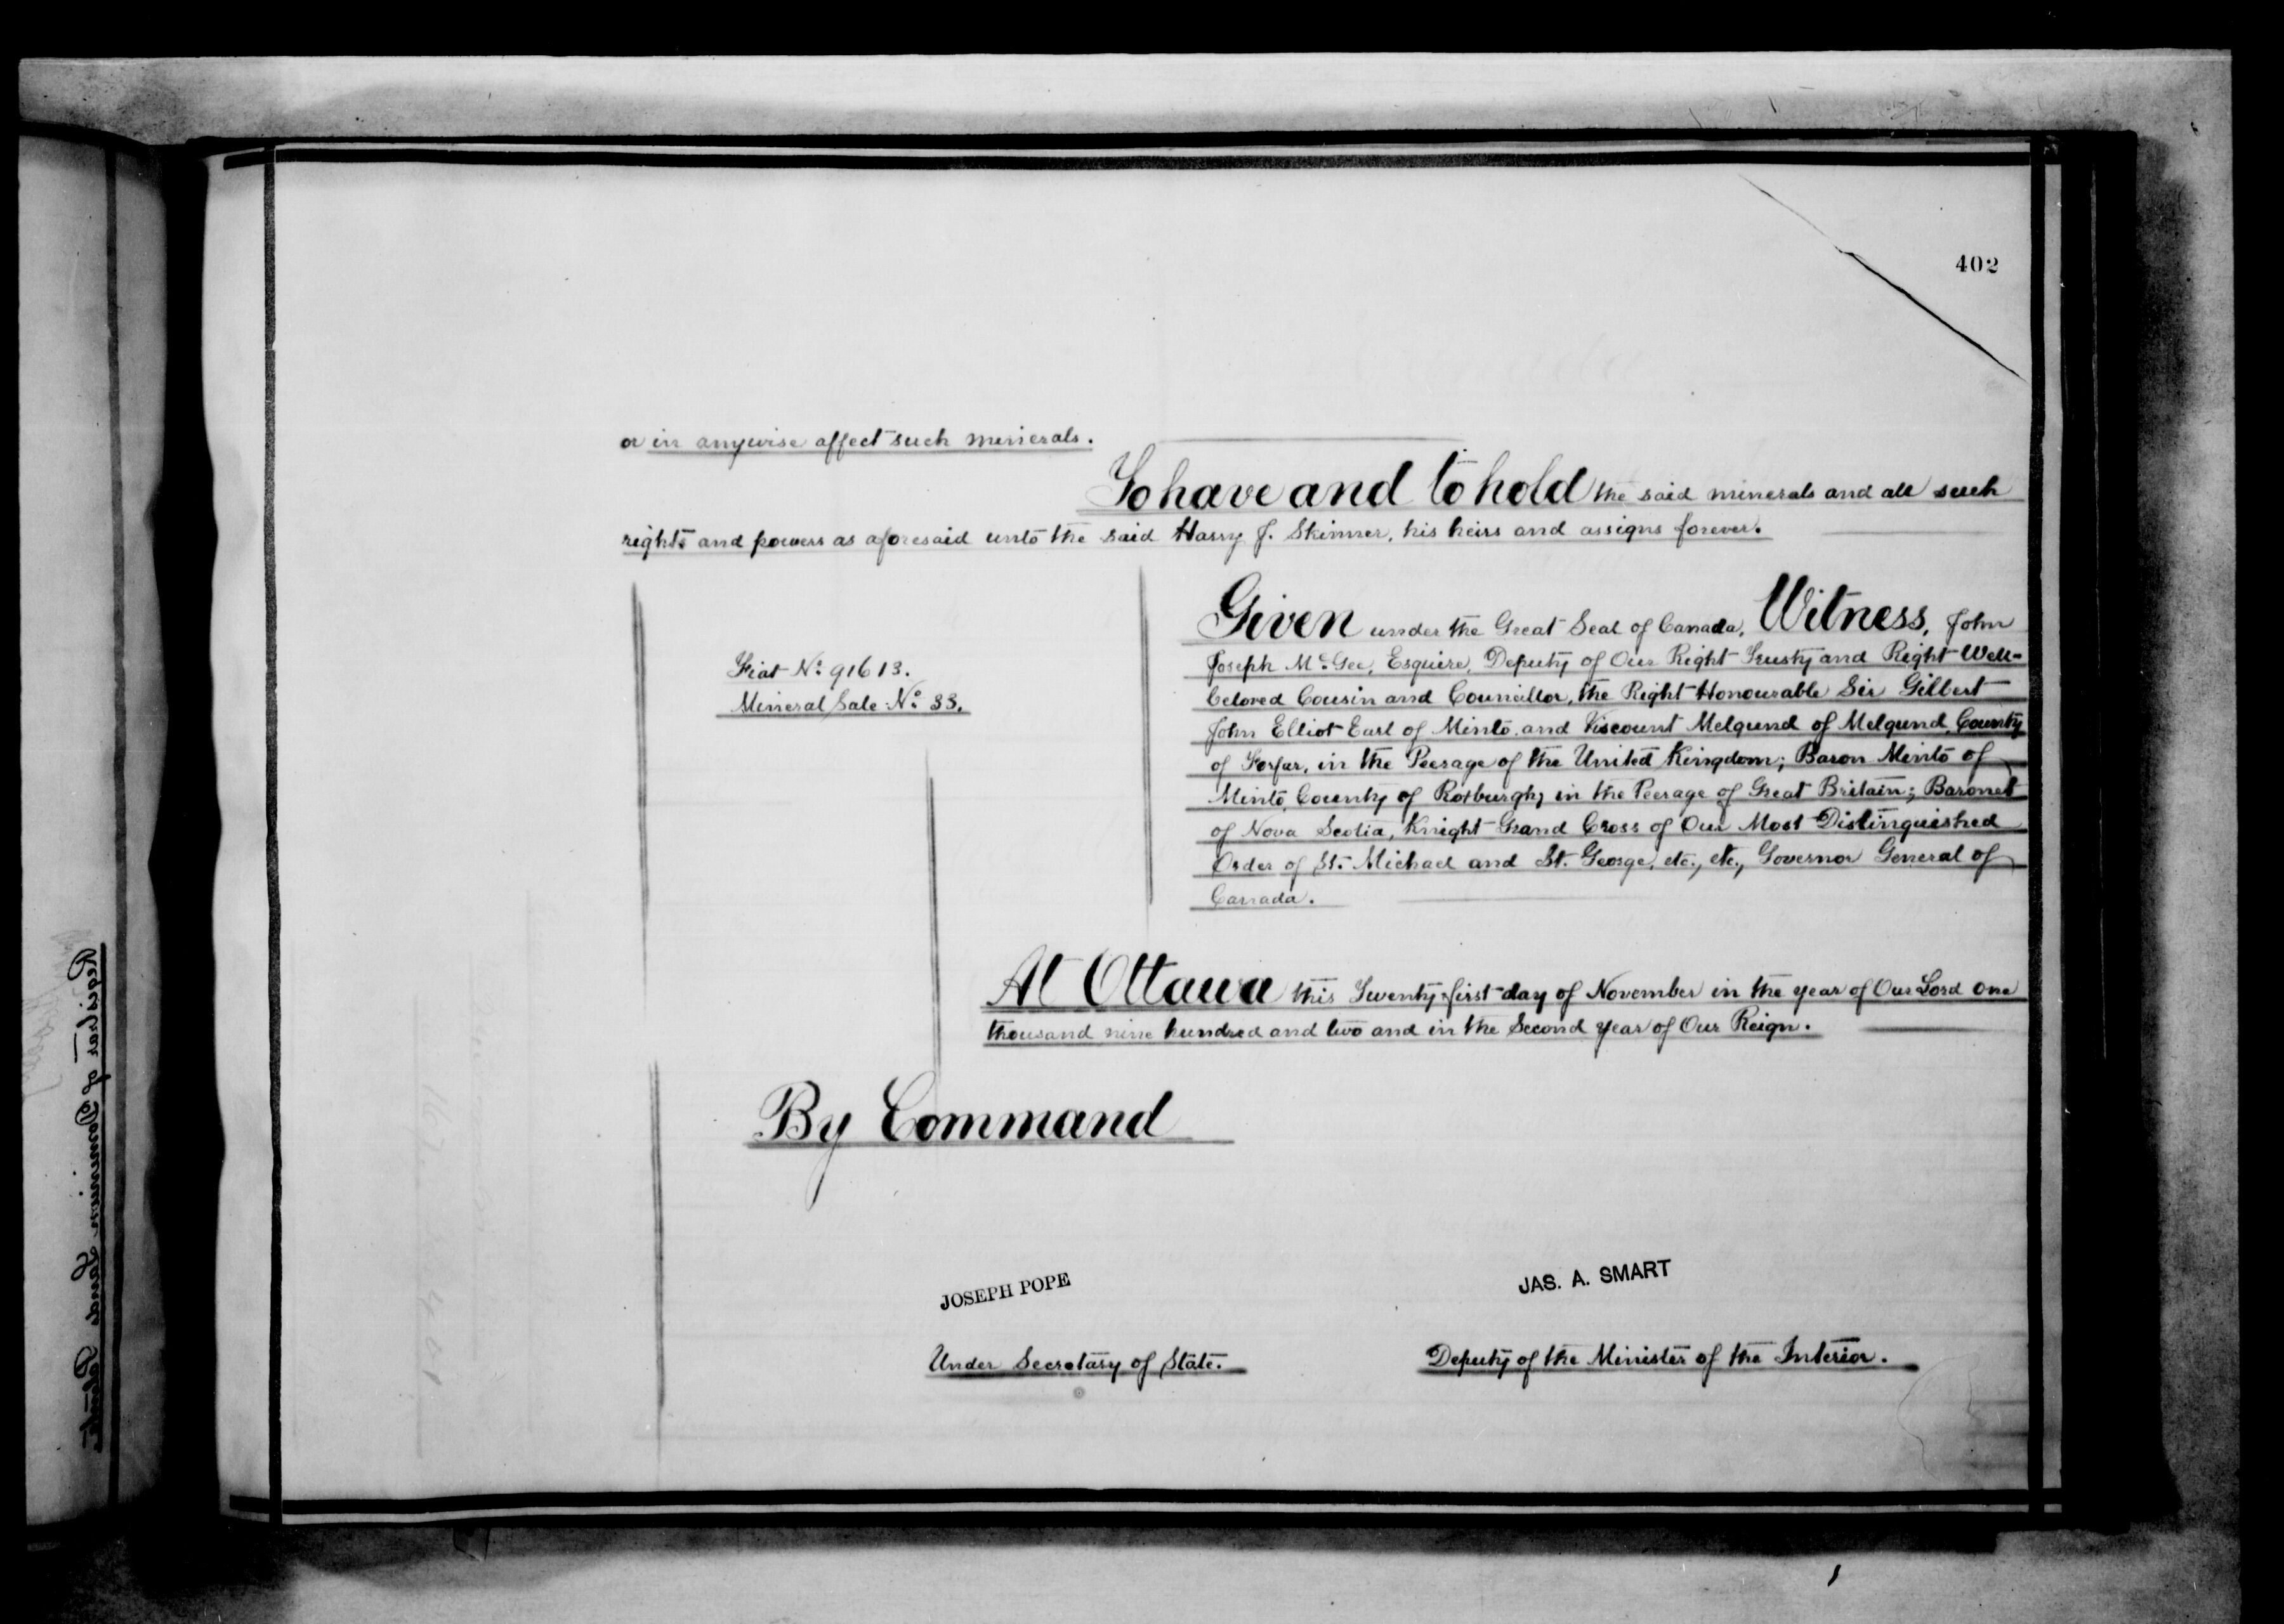 402
or in anywise affect such minerals.
To have and to hold the said minerals and all such
rights and powers as aforesaid unto the said Harry J. Skinner, his heirs and assigns forever.
Given under the Great Seal of Canada, Witness, John
Joseph McGee, Esquire, Deputy of Our Right Trusty and Right Well-
beloved Cousin and Councillor, the Right Honourable Sir Gilbert
John Elliot Earl of Minto and Viscount Melgund of Melgund, County
of Forfar, in the Peerage of the United Kingdom; Baron Minto of
Minto, County of Roxburgh, in the Peerage of Great Britain; Baronet
of Nova Scotia, Knight Grand Cross of Our Most Distinguished
Order of St. Michael and St. George, etc., etc., Governor General of
Canada.
Fiat No. 91613.
Mineral Sale No. 33.
At Ottawa this Twenty-first day of November in the year of Our Lord one
thousand nine hundred and two and in the Second year of Our Reign.
By Command
JOSEPH POPE
Under Secretary of State.
JAS. A. SMART
Deputy of the Minister of the Interior.
Registrar of Dominion Lands Patents